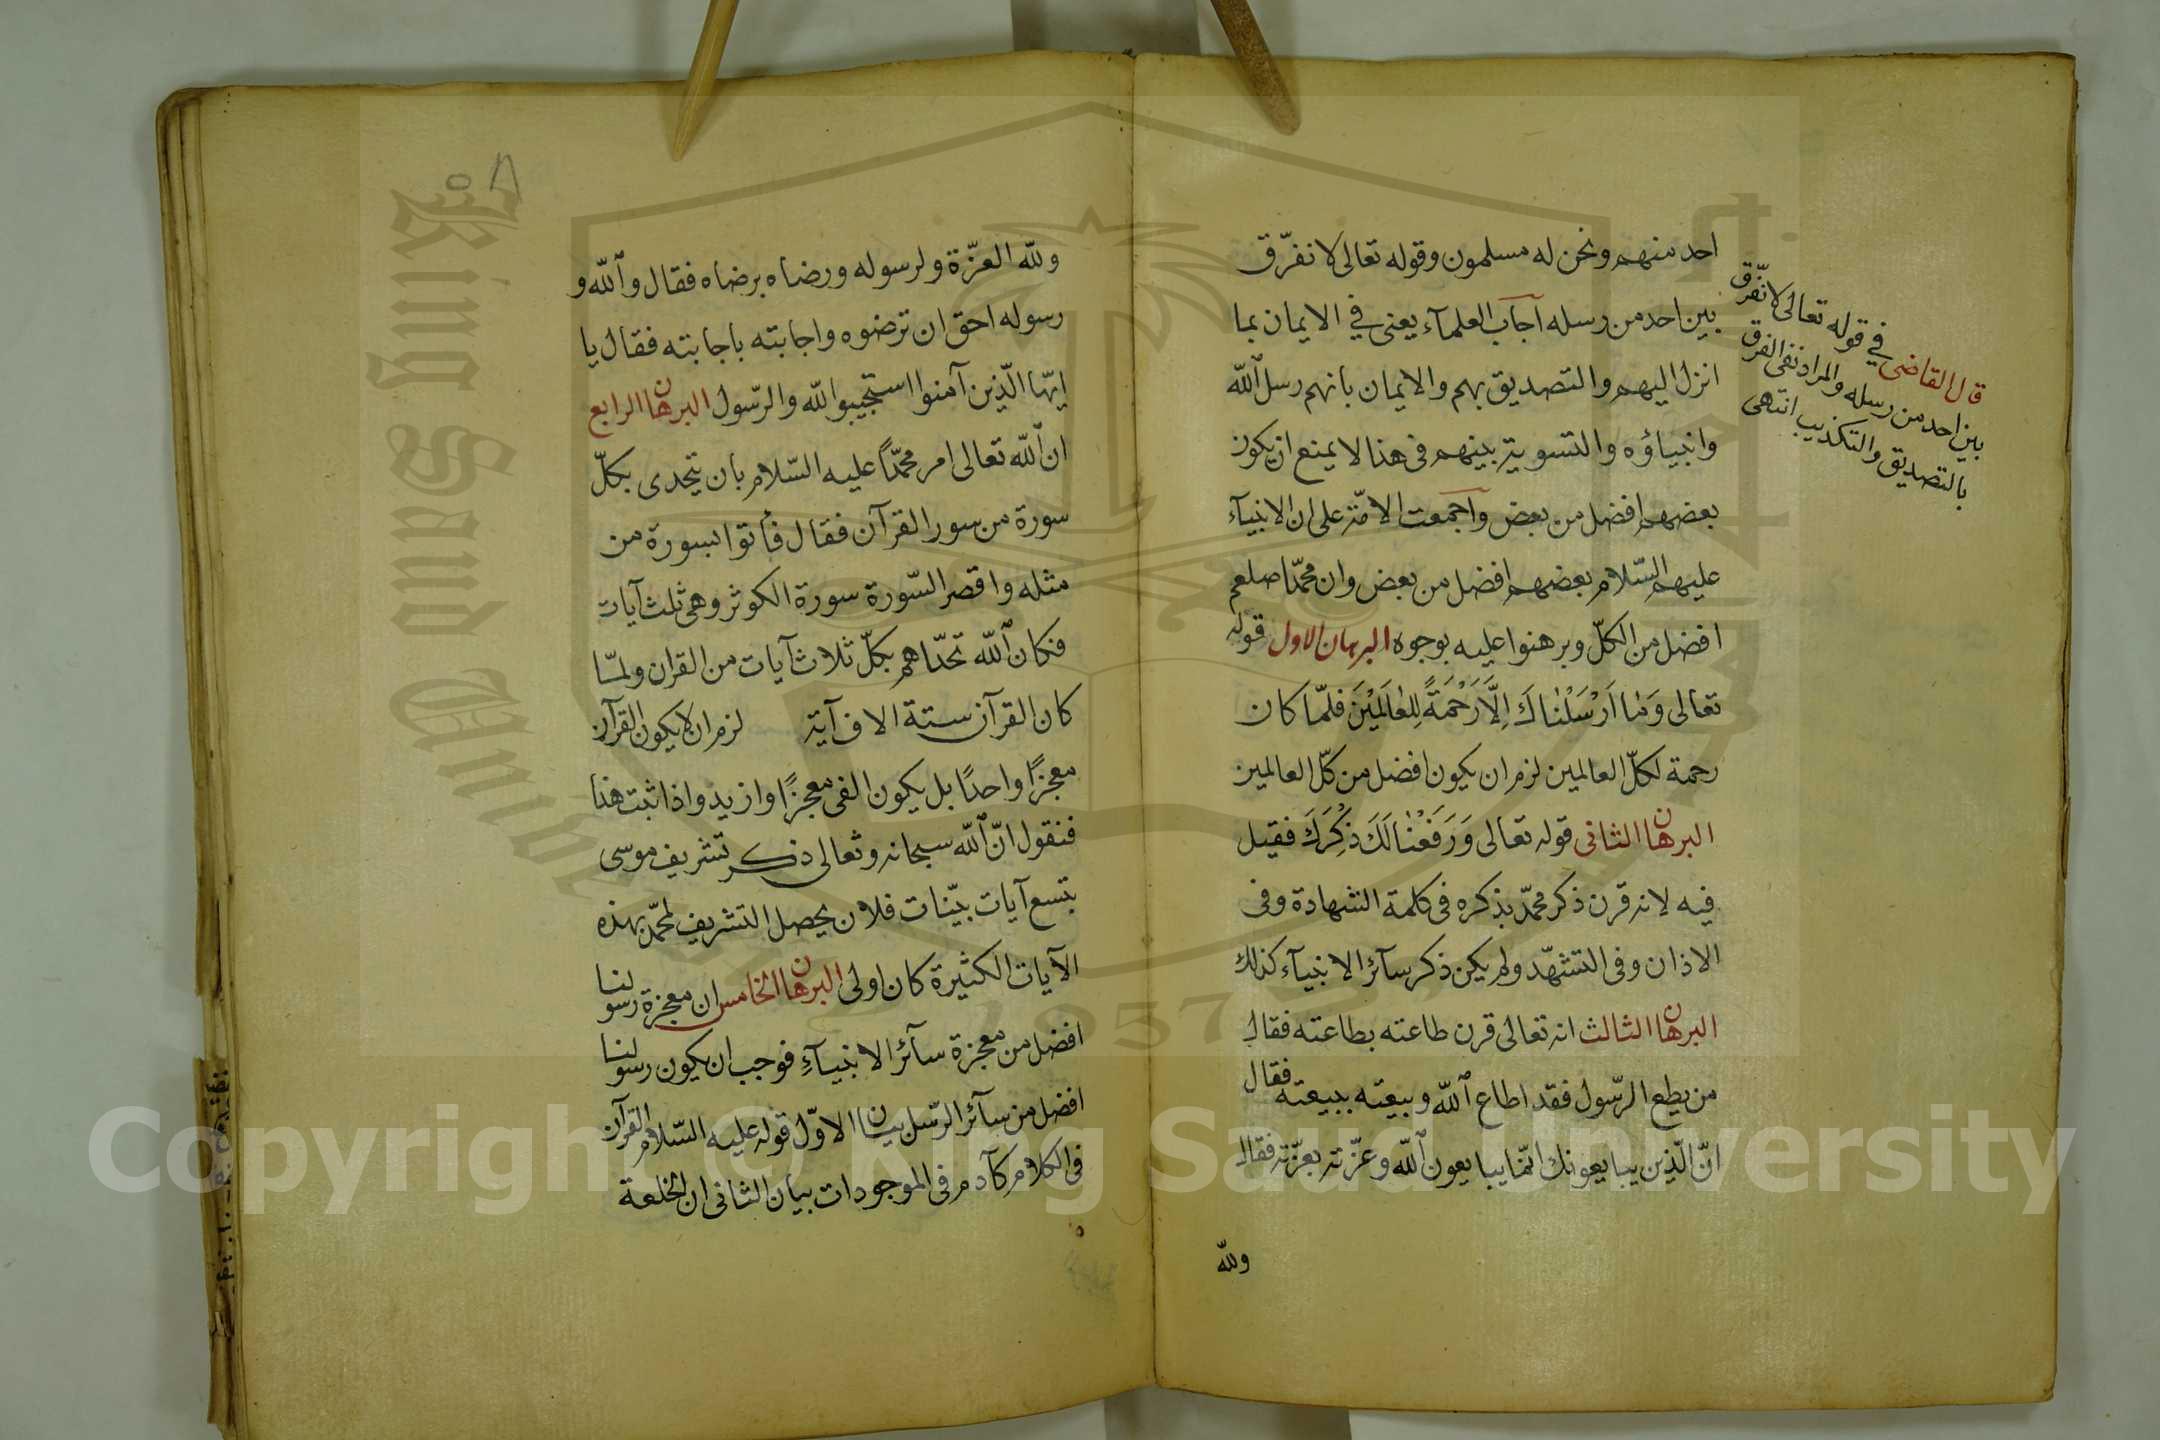 احد منهم ونحن له مسلمون وقوله تعالى لا نفرّق
بين احد من رسله اجاب العلمآء يعنى في الايمان بما
انزل اليهم والتصديق بهم والايمان بانهم رسل الله
وانبياؤه والتسوية بينهم فى هذا لا يمنع ان يكون
بعضهم افضل من بعض واجمعت الامّة على ان الانبيآء
عليهم السّلام بعضهم افضل من بعض وان محمّدا صلعم
افضل من الكلّ وبرهنوا عليه بوجوه البرهان الاول قوله
تعالى وَمَا اَرْسَلْنَاكَ اِلَّا رَحْمَةً لِلْعَالَمِيْنَ فلمّا كان
رحمة لكلّ العالمين لزم ان يكون افضل من كلّ العالمين
البرهان الثانى قوله تعالى وَرَفَعْنَا لَكَ ذِكْرَكَ فقيل
فيه لانه قرن ذكر محمّد بذكره فى كلمة الشهادة وفى
الاذان وفى التشهّد ولم يكن ذكر سآئر الانبيآء كذلك
البرهان الثالث انه تعالى قرن طاعته بطاعته فقال
من يطع الرّسول فقد اطاع الله وبيعته ببيعته فقال
انّ الّذين يبايعونك انّما يبايعون الله وعزّته بعزّته فقال
ولله
قال القاضى في قوله تعالى لا نفرّق
بين احد من رسله والمراد نفى الفرق
بالتصديق والتكذيب انتهى
٥٨
ولله العزّة ولرسوله ورضاه برضاه فقال والله و
رسوله احق ان ترضوه واجابته باجابته فقال يا
ايّها الّذين آمنوا استجيبوا لله والرّسول البرهان الرابع
ان الله تعالى امر محمّدًا عليه السّلام بان يتحدى بكلّ
سورة من سور القرآن فقال فأتوا بسورة من
مثله واقصر السّورة سورة الكوثر وهى ثلث آيات
فكان الله تحدّاهم بكلّ ثلاث آيات من القران ولمّا
كان القرآن ستة الاف آية لزم ان لا يكون القرآن
معجزًا واحدًا بل يكون الفى معجزًا وازيد واذا ثبت هذا
فنقول انّ الله سبحانه وتعالى ذكر تشريف موسى
بتسع آيات بيّنات فلان يحصل التشريف لمحمّد بهذه
الآيات الكثيرة كان اولى البرهان الخامس ان معجزة رسولنا
افضل من معجزة سآئر الانبيآءِ فوجب ان يكون رسولنا
افضل من سآئر الرّسل بيان الاوّل قوله عليه السّلام القرآن
فى الكلام كآدم فى الموجودات بيان الثانى ان الخلعة
Copyright © King Saud University
King Saud University
1957